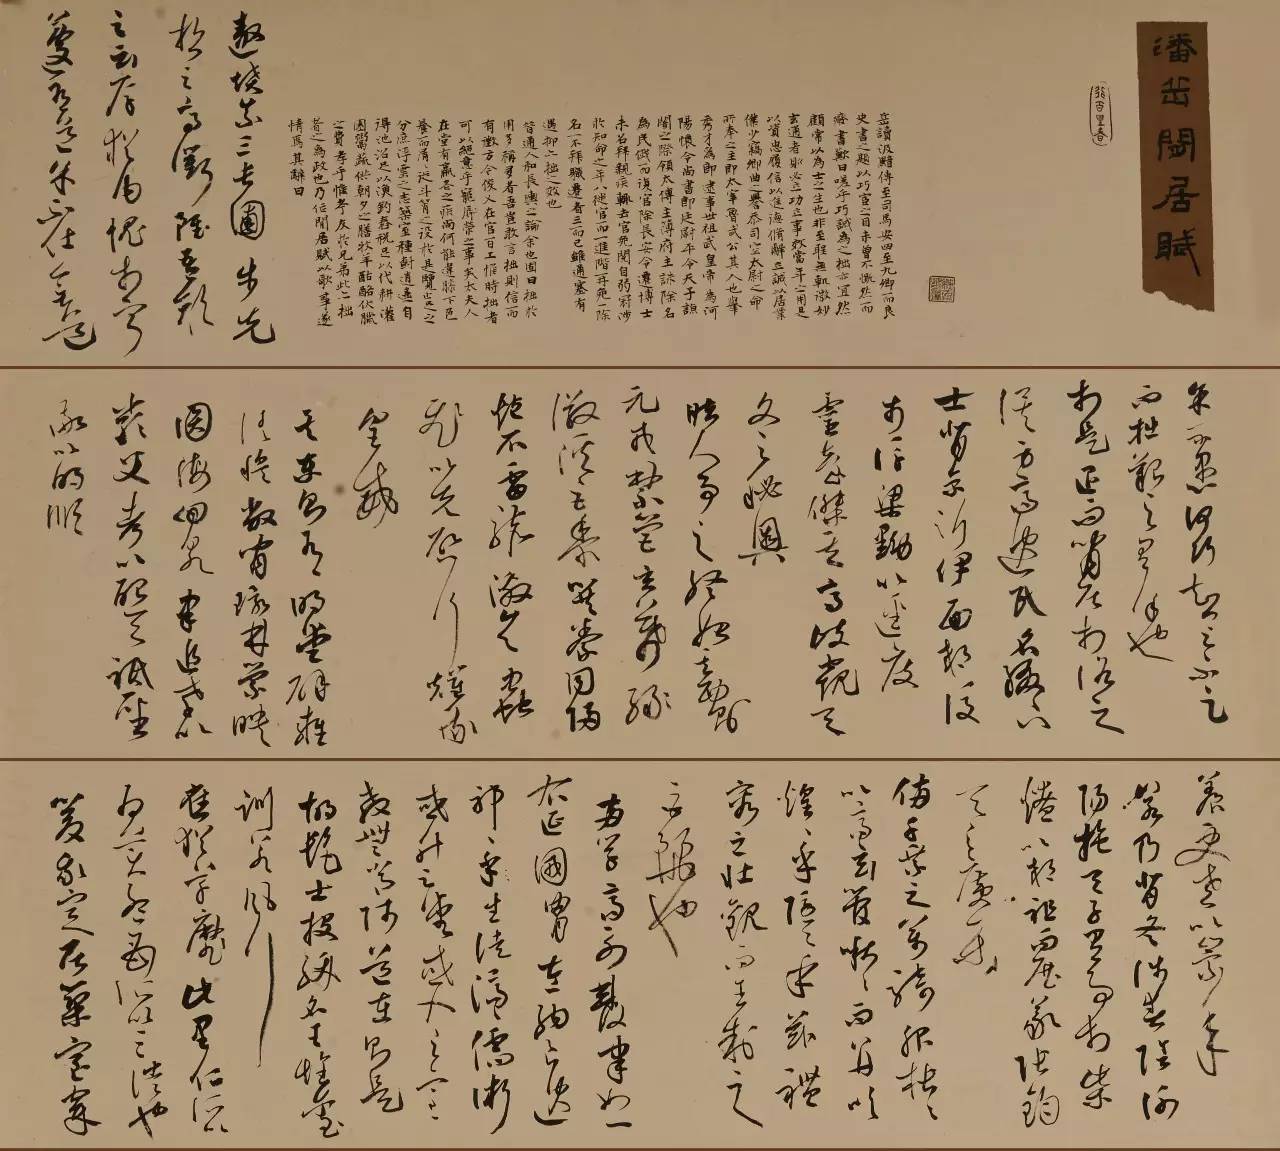 潘岳閒居賦
岳讀汲黯傳至司馬安四至九卿而良
史書之題以巧宦之目未曾不慨然而
廢書歎曰嗟乎巧誠為之拙亦宜然
顧常以為士之生也非至聖無軌微妙
玄通者則必立功立事效當年之用是
以資忠履信以進德脩辭立誠以居業
僕少竊鄉曲之譽忝司空太尉之命
所奉之主即太宰魯武公其人也舉
秀才為郎逮事世祖武皇帝為河
陽懷令尚書郎廷尉平今天子諒
闇之際領太傅主簿府主誅除名
為民俄而復官除長安令遷博士
未召拜親疾輒去官免閑自弱冠涉
於知命之年八徙官而一進階再免一除
名一不拜職遷者三而已雖通塞有
遇抑亦拙之效也
昔通人和長輿之論余也固曰拙於
用多稱多者吾豈敢言拙則信而
有徵方今俊乂在官百工惟時拙者
可以絕意乎寵榮之事矣太夫人
在堂有羸老之疾尚何能違膝下色
養而屑屑從斗筲之役於是覽止足之
分庶浮雲之志築室種樹逍遙自
得池沼足以漁釣舂稅足以代耕灌
園鬻蔬供朝夕之膳牧羊酤酪俟伏臘
之費孝乎惟孝友于兄弟此亦拙
者之為政也乃作閒居賦以歌事遂
情焉其辭曰
遨墳素之長圃步先
哲之高衢雖吾顏
之云厚猶內愧於甯
蘧有道余不仕無道
吾不愚何巧智之不足
而拙艱之有餘也
於是退而閒居於洛之
涘身齊逸民名綴下
士背京泝伊面郊後
市浮梁黝以逕度
靈臺傑其高峙窺天
文之秘奧
睹人事之終始其西則有
元戎禁營玄幕綠
徽谿子巨黍異絭同機
炮石雷駭激矢虻
飛以先啟行耀我
皇威
其東則有明堂辟雍
清穆敞閑環林縈映
圓海迴淵聿追孝以
嚴父考以配天祗聖
敬以明順
養更老以崇年
若乃背冬涉春陰謝
陽施天子有事於柴
燎以郊祖而展義張鈞
天之廣樂
備千乘之萬騎服棖棖
以齊玄管啾啾而並吹
煌煌乎隱隱乎茲禮
容之壯觀而王制之
巨麗也
兩學齊列雙宇如一
右延國胄左納良逸
祁祁生徒濟濟儒術
或升之堂或入之室
教無常師道在則是
故髦士投紱名王懷璽
訓若風行
應猶草靡此里仁所
以為美孟母所以三徙也
爰定我居築室穿